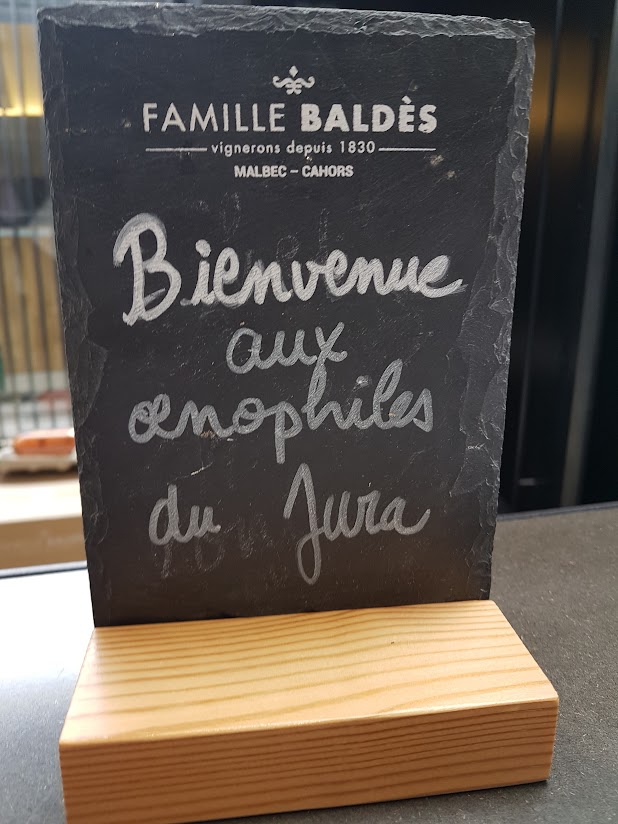 FAMILLE BALDÈS
vignerons depuis 1830
MALBEC – CAHORS
Bienvenue
aux
œnophiles
du Jura